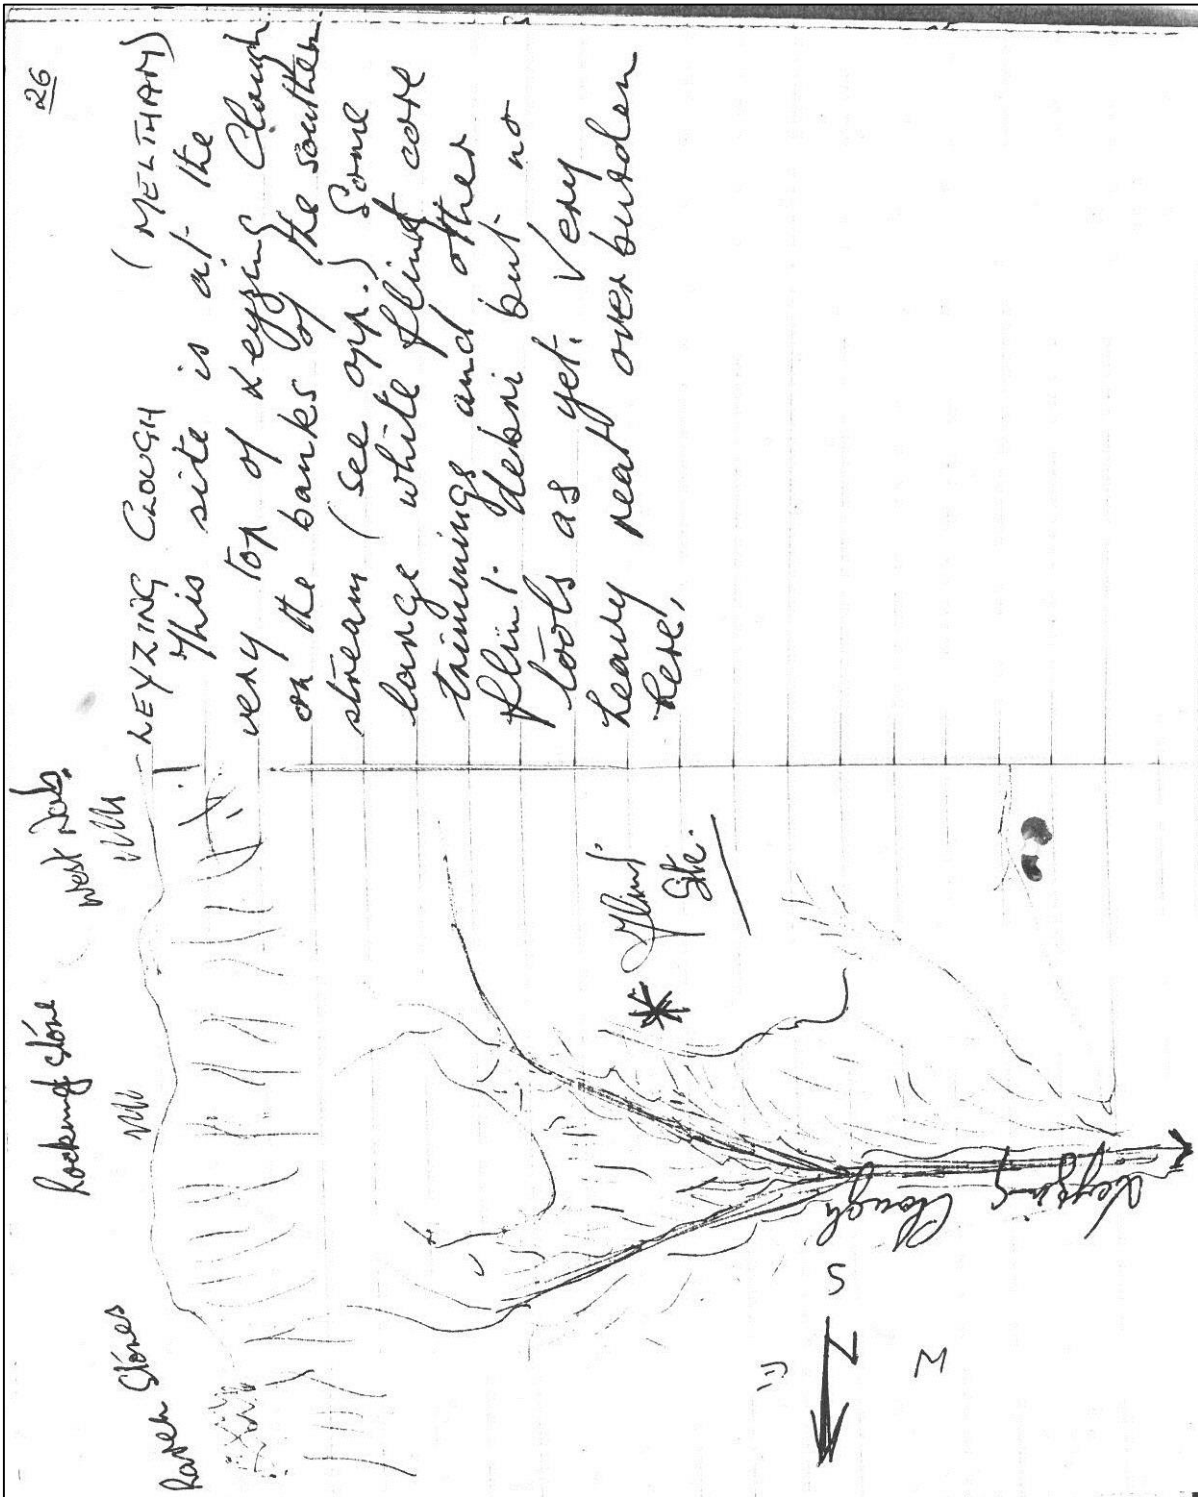 26
LEYZING CLOUGH (MELTHAM)
This site is at the
very top of Leyzing Clough
on the banks of the southern
stream (see opp.) Some
large white flint core
trimmings and other
flint debri but no
tools as yet. Very
heavy peat overburden
here.
Raven Stones
Rocking Stone
West Nab.
Flint
Site.
Leyzing
Clough
S
N
E
W